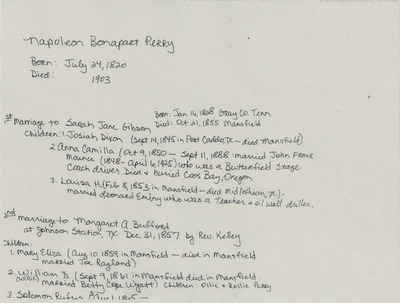 Napoleon Bonapart Perry
Born: July 24, 1820
Died: 1903
Born: Jan 16, 1828 Gray Co. Tenn
1st Marriage to Sarah Jane Gibson Died: Oct 21, 1855 Mansfield
Children: 1. Josiah Dixon (Sept 14, 1845 in Port Caddo, TX - died Mansfield)
2. Anna Camilla (Oct 9, 1850 - Sept 11, 1888 married John Frank
Maunce (1848 - April 6, 1925) who was a Butterfield Stage
Coach driver. Died & buried Coos Bay, Oregon
3. Louisa H. (Feb 8, 1853 in Mansfield - died Midlothian, TX) -
married Leonard Embry who was a Teacher & oil well driller.
2nd marriage to Margaret A. Bufford
at Johnson Station, TX Dec 31, 1857 by Rev. Kelley
Children:
1. Mary Eliza (Aug 10 1859 in Mansfield - died in Mansfield
married Joe Ragland)
2. William D. (Sept 9, 1861 in Mansfield died in Mansfield.
(Willie) married Betty Cope Wyatt) Children: Ollie & Rollie Perry
3. Solomon Rufus